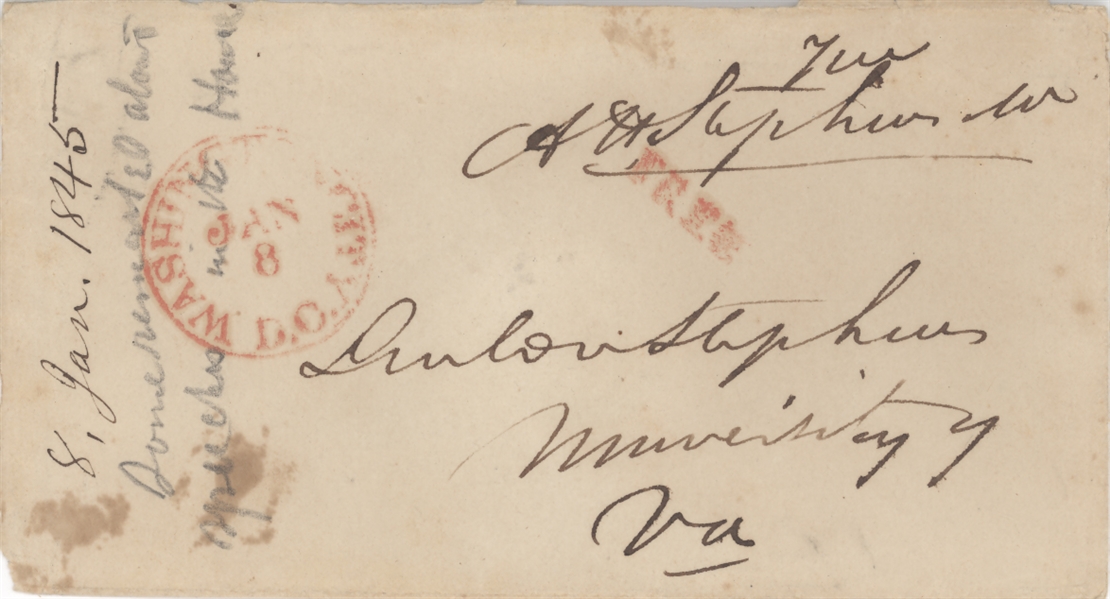 Free
A H Stephens MC
FREE
WASHINGTON D.C.
JAN
8
Linton Stephens
University of
Va
8, Jan. 1845
Some remarks about
speeches in the House.